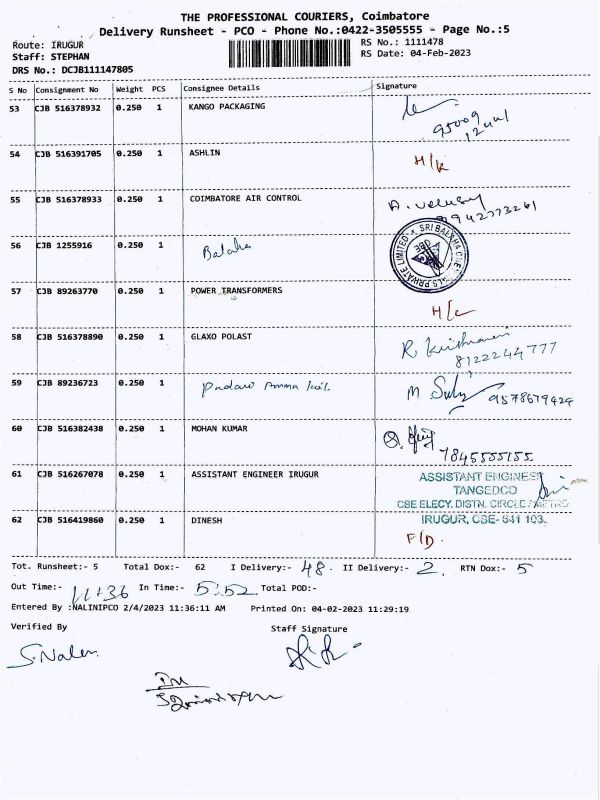 THE PROFESSIONAL COURIERS, Coimbatore
Delivery Runsheet - PCO - Phone No.:0422-3505555 - Page No.:5
Route: IRUGUR
RS No.: 1111478
Staff: STEPHAN
RS Date: 04-Feb-2023
DRS No.: DCJB111147805
S No Consignment No Weight PCS Consignee Details Signature
53 CJB 516378932 0.250 1 KANGO PACKAGING
54 CJB 516391705 0.250 1 ASHLIN H/K
55 CJB 516378933 0.250 1 COIMBATORE AIR CONTROL A. Velusamy
9942773261
56 CJB 1255916 0.250 1 Balaha
57 CJB 89263770 0.250 1 POWER TRANSFORMERS H/L
58 CJB 516378890 0.250 1 GLAXO POLAST R. Krishnaveni
8122244777
59 CJB 89236723 0.250 1 M
9578679424
60 CJB 516382438 0.250 1 MOHAN KUMAR
7845555155
61 CJB 516267078 0.250 1 ASSISTANT ENGINEER IRUGUR ASSISTANT ENGINEER
TANGEDCO
CBE ELECY. DISTN. CIRCLE / METRO
62 CJB 516419860 0.250 1 DINESH IRUGUR, CBE- 641 103.
F/D.
Tot. Runsheet:- 5 Total Dox:- 62 I Delivery:- 48. II Delivery:- 2. RTN Dox:- 5
Out Time:- 11:36 In Time:- 5:52 Total POD:-
Entered By :NALINIPCO 2/4/2023 11:36:11 AM Printed On: 04-02-2023 11:29:19
Verified By Staff Signature
S. Nalini